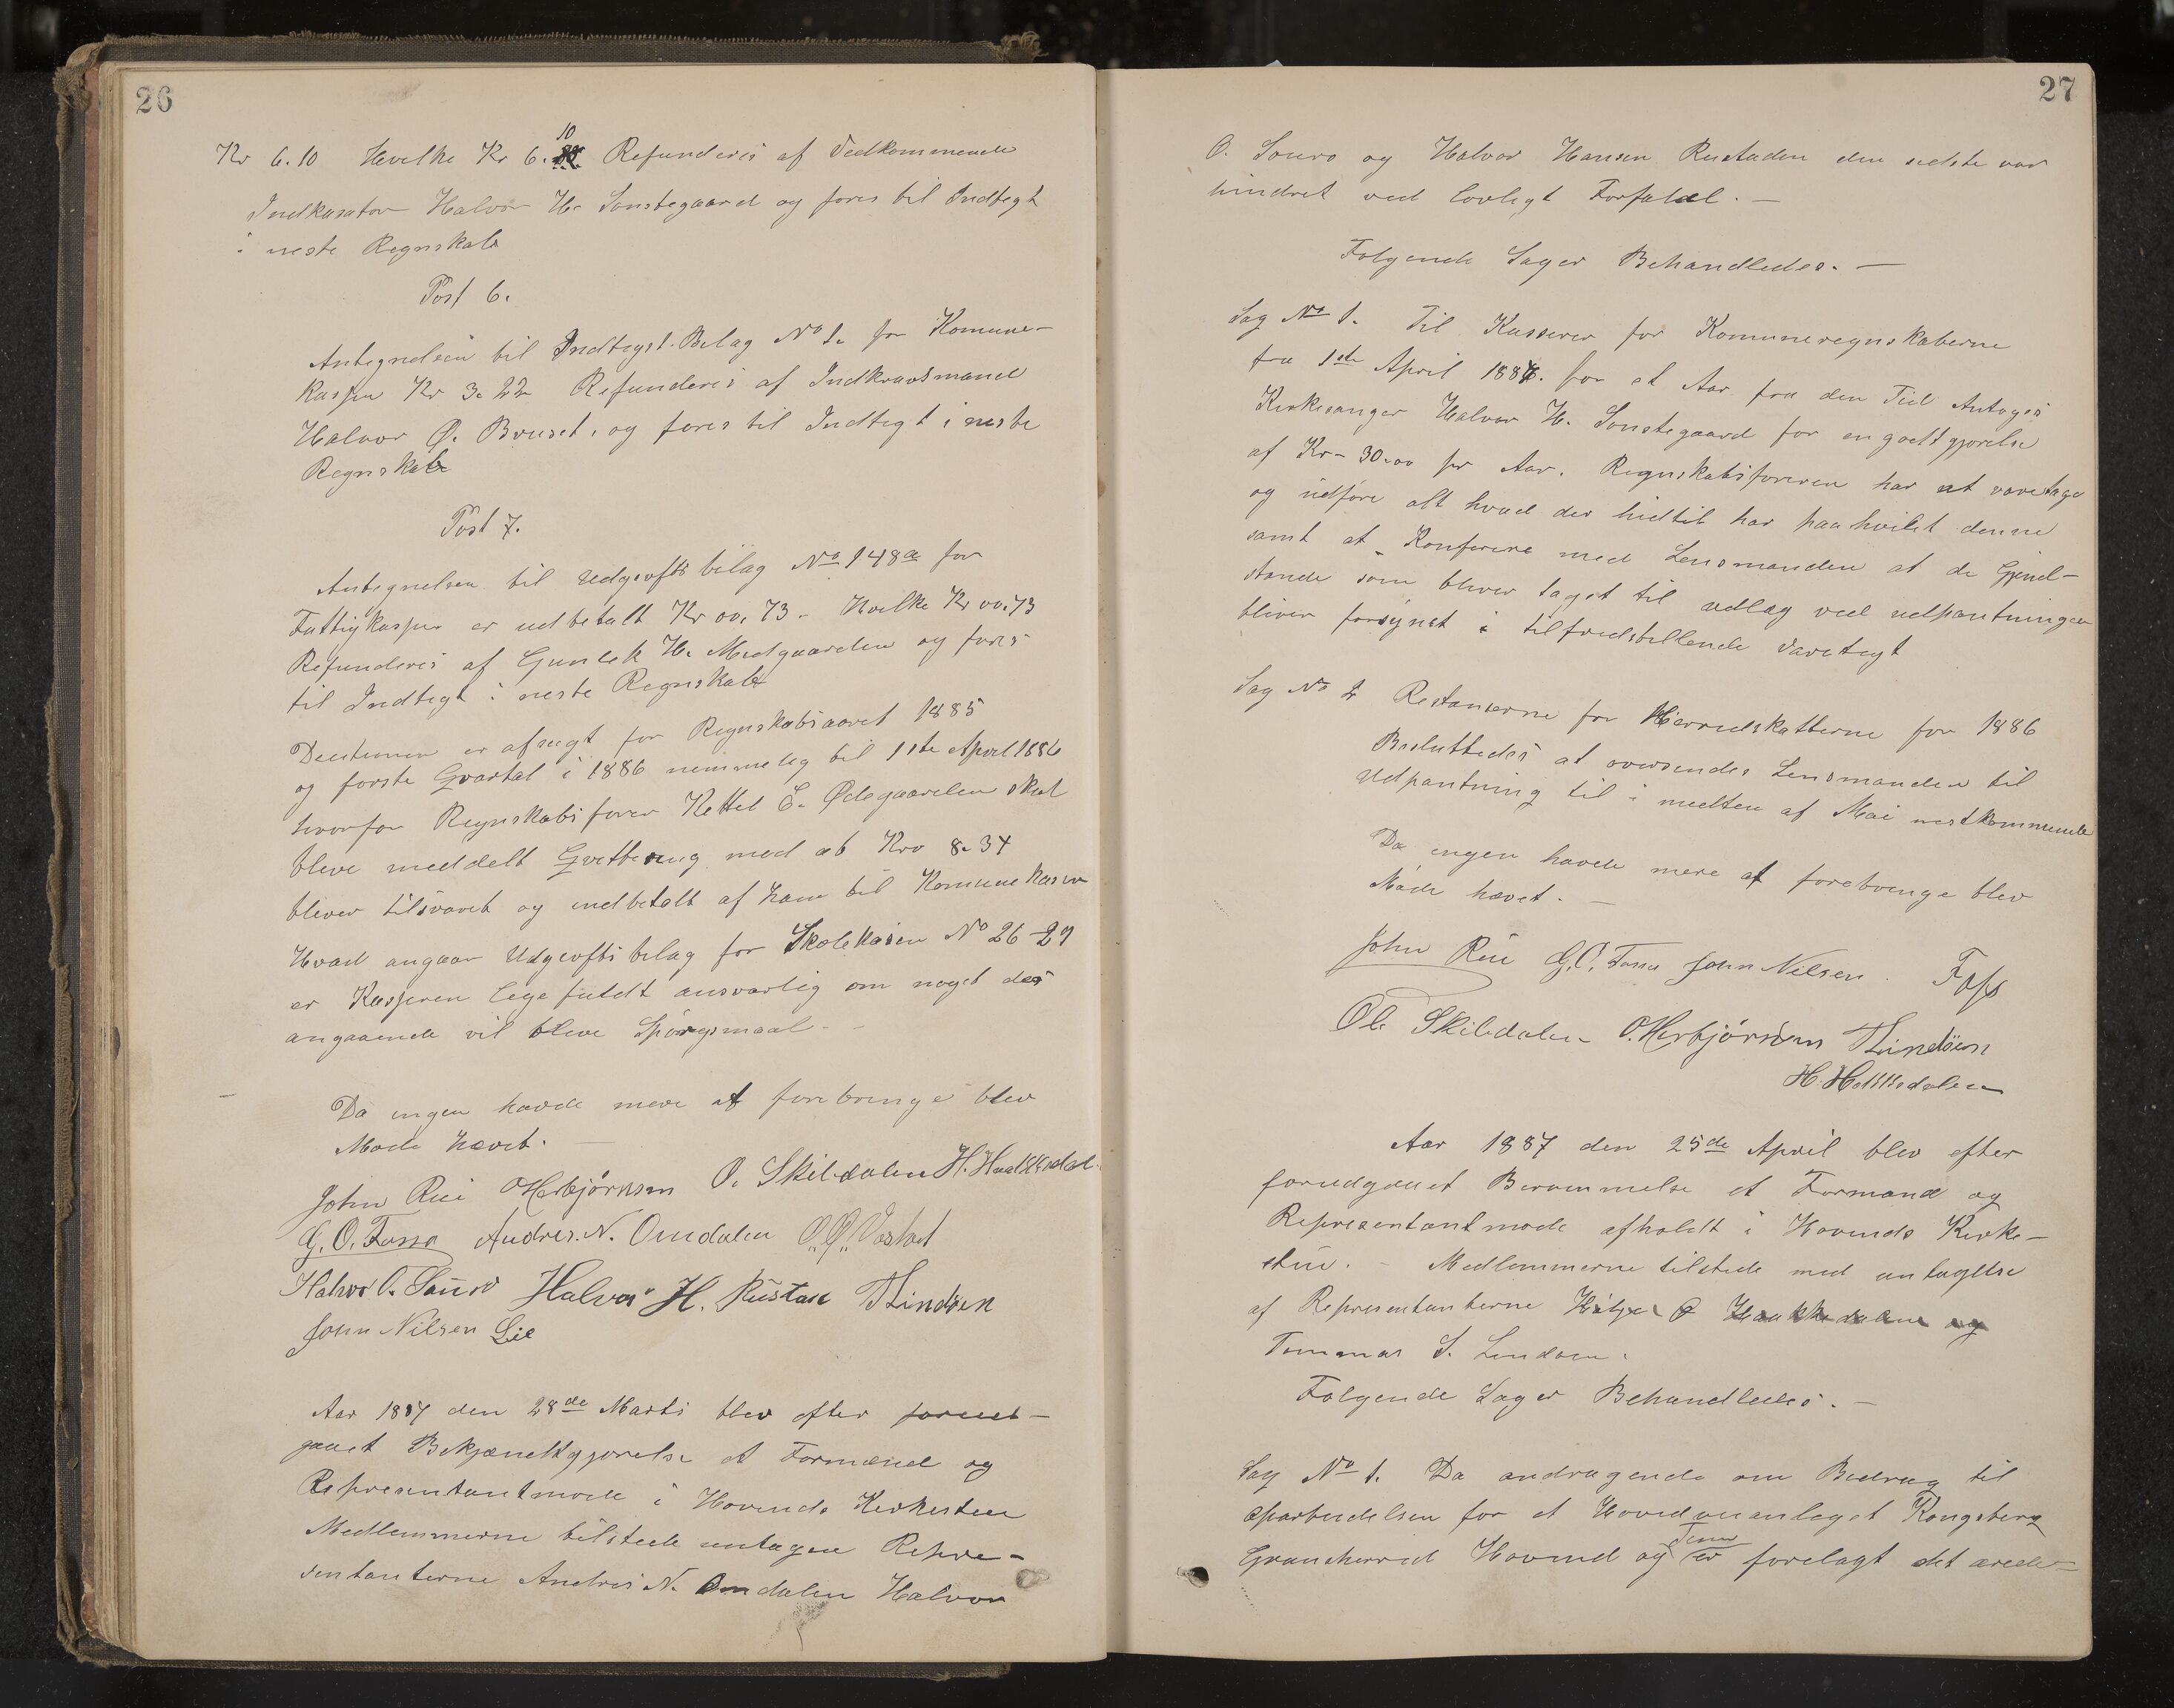 26
Kr 6.10 Hvilke Kr 6.10 Refunderes af Vedkommende
Indkasator Halvor H. Sønstegaard og føres til Indtegt
i neste Regnskab
Post 6.
Antegnelsen til Indtegst. Belag No 1. for Komune-
kassen Kr 3.22 Refunderes af Indkravsmand
Halvor Ø. Bruset, og føres til Indtegt i neste
Regnskab
Post 7.
Antegnelsen til Udgiofts bilag No 148a for
Fattigkassen er udbetalt Kr 00.73 - Hvilke Kr 00.73
Refunderes af Gunlek H. Midgaarden og føres
til Indtegt i neste Regnskab
Decitionen er afsagt for Regnskabsaaret 1885
og første Qvartal i 1886 nemmelig til 1ste April 1886
hvorfor Regnskabsfører Kettel E. Ødegaarden skal
bleve meddelt Qvittering med at Kro 8.34
bliver tilsvaret og indbetalt af ham til Komunekassen
Hvad angaar Udgiofts bilag for Skolekasen No 26-29
er Kasseren lege fuldt ansvarlig om noget des
angaaende vil bleve Spørgsmaal -
Da ingen havde mere at forebringe blev
Møde hævet. -
John Rui OHerbjørnsen O. Skildalen H. Haakkedal
G. O. Fosso Andres. N. Omdalen O. Ø. Vastvet
Halvor O. Sauro Halvor H. Rustan TLindøen
John Nilsen Lie
Aar 1887 den 28de Marts blev efter forud-
gaaet Bekjændtgjørelse et Formænd og
Representantmøde i Hovinds Kirkestue
Medlemmerne tilstede untagen Repre-
sentanterne Andres N. Omdalen Halvor
27
O. Souro og Halvor Hansen Rustaden den sidste var
hindret ved lovligt Forfald. -
Følgende Sager Behandledes. -
Sag No 1. Til Kasserer for Komuneregnskaberne
fra 1ste April 1887. for et Aar fra den Tid Antoges
Kirkesanger Halvor H. Sønstegaard for en godtgjørelse
af Kr- 30.00 pr Aar. Regnskabsføreren har at varetage
og udføre alt hvad der hidtil har paahvilet denne
samt at Konferere med Lensmanden at de Gjend-
stande som bliver taget til udlæg ved udpantningen
bliver forsynet i tilfredstillende Varetegt
Sag No 2 Restanserne for Herredskatterne for 1886
Besluttedes at oversendes Lensmanden til
Udpantning til i midten af Mai nestkommende
Da ingen havde mere at forebringe blev
Møde hævet. -
John Rui G. O. Fosso John Nilsen. Foss
Ol. Skildalen O. Herbjörnsen TLindöen
H. Hakkedalen
Aar 1887 den 25de April blev efter
forudgaaet Berammelse et Formand og
Representantmøde afholdt i Hovinds Kirke-
stue. - Medlemmerne tilstede med untagelse
af Representanterne Helge O Haakkedalen og
Tommas S. Lindøen.
Følgende Sager Behandledes. -
Sag No 1. Da andragende om Bedrag til
oparbeidelsen for et Hovedveianlæget Kongsberg
Granherred Hovind og Tinn er forelagt det ærede-